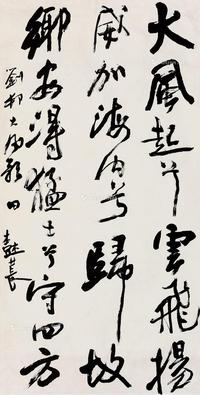 大風起兮雲飛揚
威加海內兮歸故
鄉安得猛士兮守四方
劉邦大風歌 曰